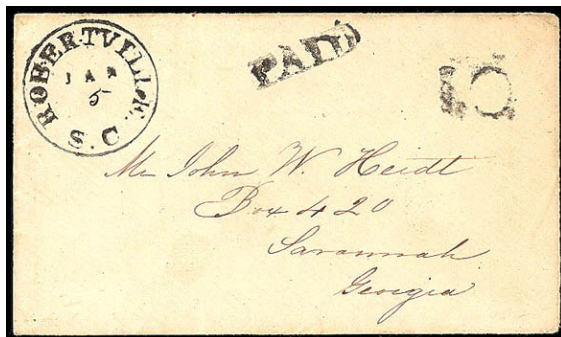 ROBERTVILLE. S.C
JAN
5
PAID
10
Mr John W. Heidt
Box 420
Savannah
Georgia